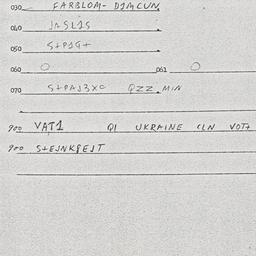 030 FARBLOM- DIMCUN
040 JASLIS
050 S+PIG+
060 O 061 O
070 S+PAJ3XC QZZ.MIN
900 VAT1 QI UKRAINE CLN VOT+
900 S+EJNKPEJT